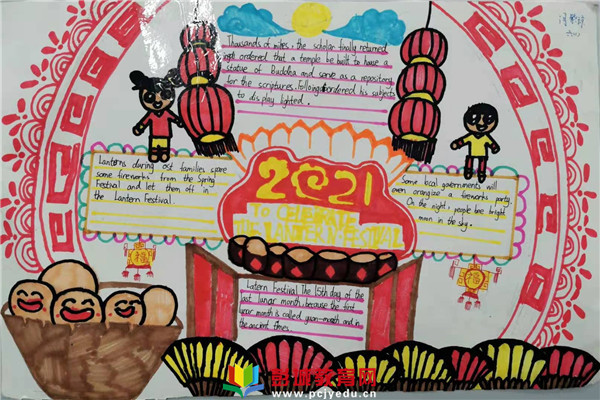 Thousands of miles, the scholar finally returned
ordered that a temple be built to have a
statue of Buddha and serve as a repository
for the scriptures. Following ordered his subjects
to display lighted.
Lanterns during est families spare
some fireworks from the Spring
Festival and let them off in
the Lantern Festival
2021
TO CELEBRATE
THE LANTERN FESTIVAL
Some local governments will
even orangize a fireworks party.
On the night, people bright
moon in the sky.
Latern hestival The 15th day of the
last lunar month, because the first
lunar month is called yuan-month and in
the ancient times.
福
福
彭城教育网
www.pcjyedu.cn